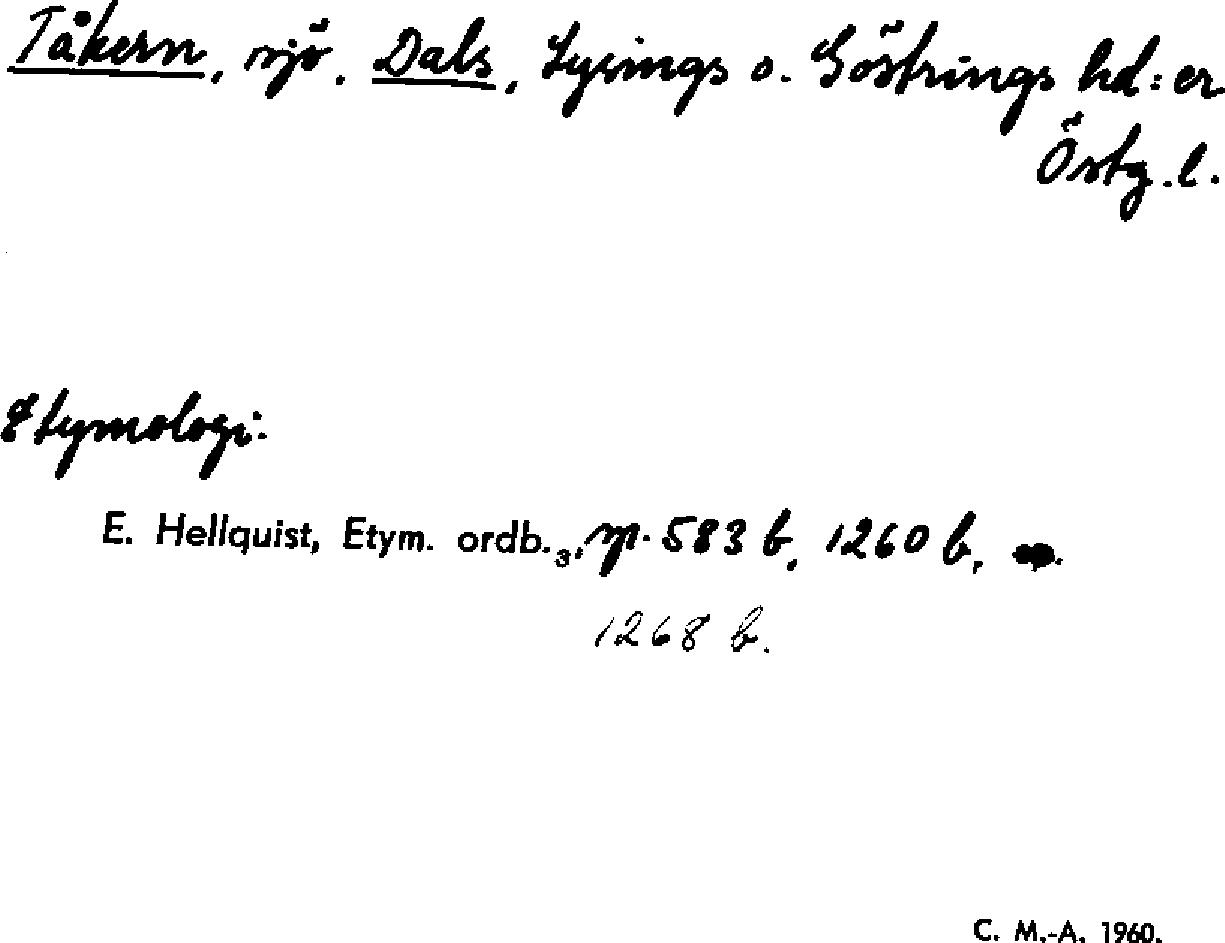 Tåkern, sjö. Dals, Lysings o. Göstrings hd:er
Östg.l.
Etymologi:
E. Hellquist, Etym. ordb.₃, sp. 583 b, 1260 b,
1268 b.
C. M.-A. 1960.